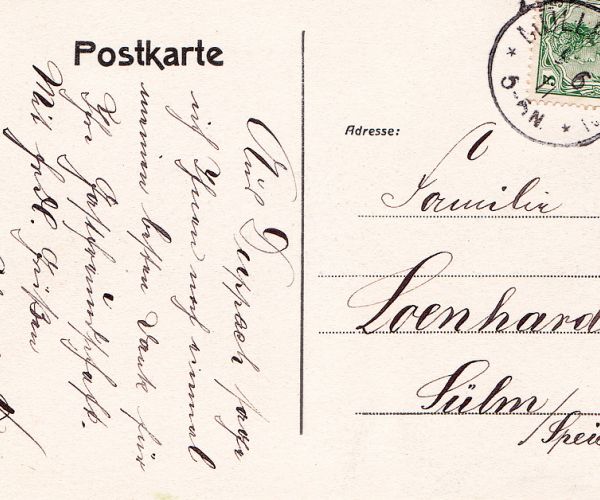 Postkarte
Aus sage
ich Ihnen noch einmal
meinen besten Dank für
Ihre Gastfreundschaft.
Mit frdl. Grüßen
Adresse:
Familie
Loenhard
Sülm/